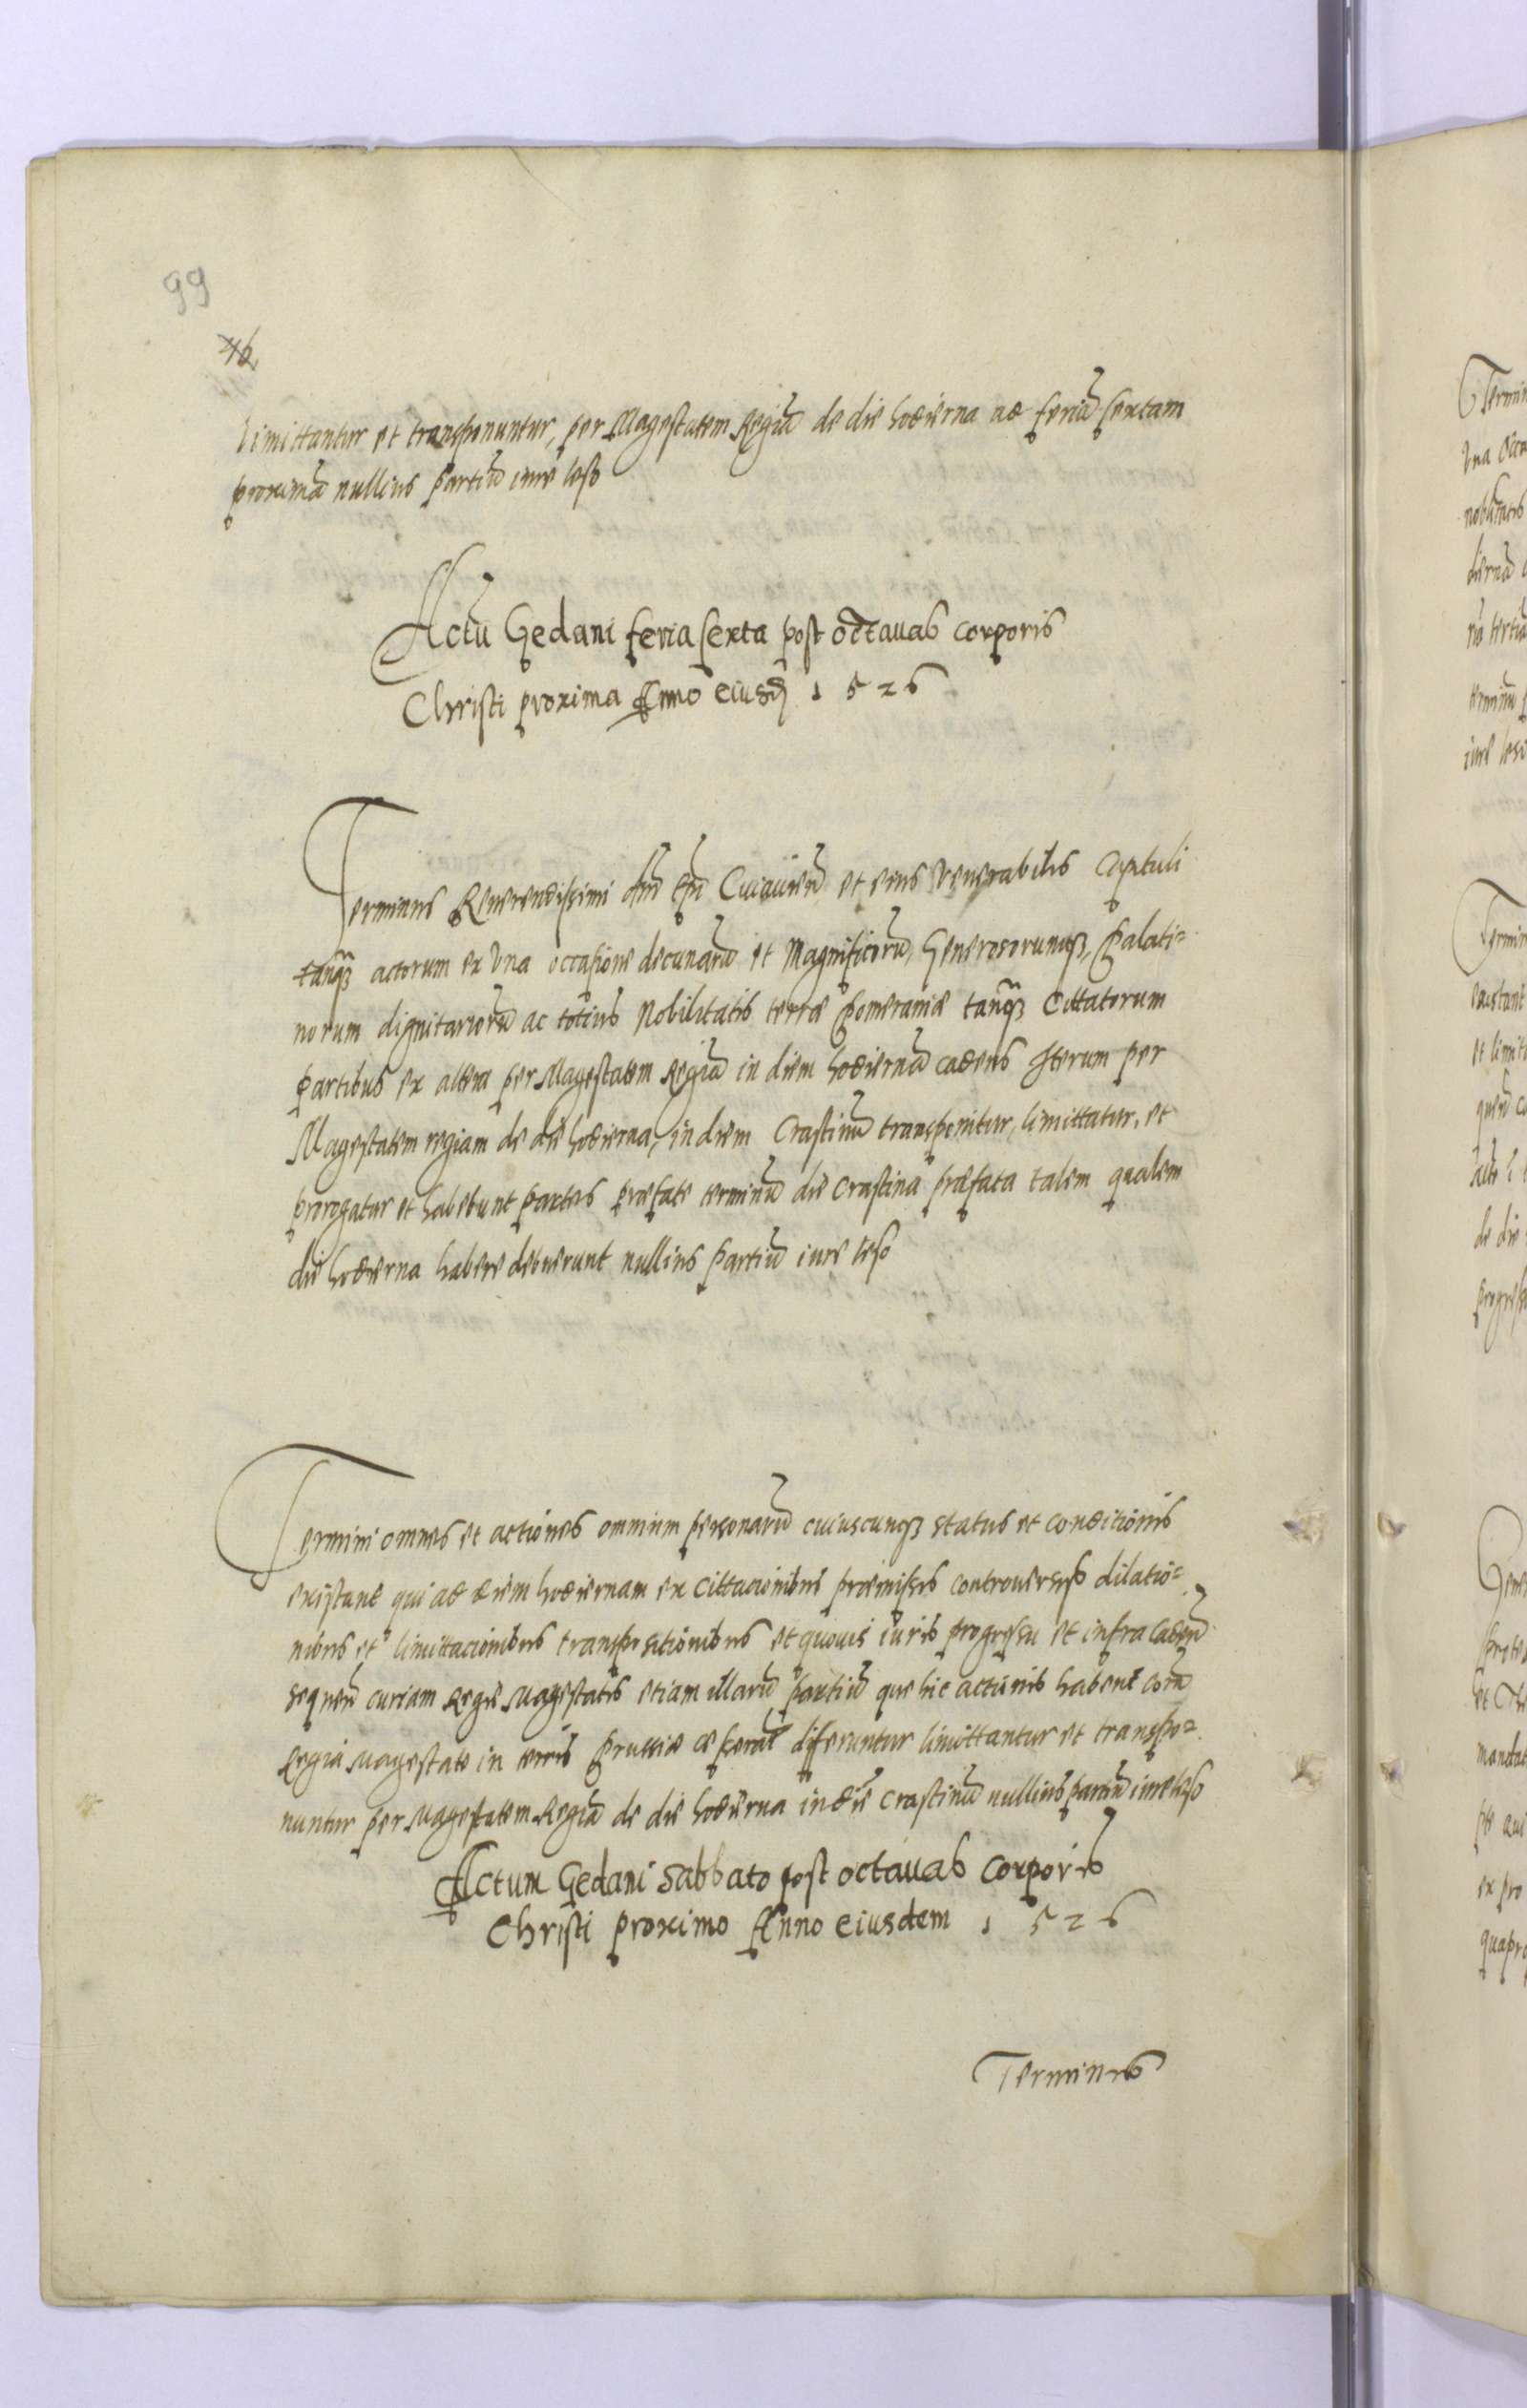 99
46
limittantur et transponuntur, per Magestatem Regiā de die hodierna ad feriā sextam
proximā nullius partiū iure leso
Actū Gedani feria sexta post octauas corporis
Christi proxima Anno eiusdē 1526
Terminus Reuerendissimi dn̄i Epī Cuiauien̄ et eius Venerabilis Capituli
tanqꝫ actorum ex Vna occasione decimarū et Magnificorū, Generosorumqꝫ, Palati=
norum dignitariorū ac totius Nobilitatis terræ Pomeraniæ tanqꝫ Cittatorum
partibus ex altera per Magestatem Regiā in diem hodiernā cadens Iterum per
Magestatem regiam de die hodierna, in diem Crastinū transponitur, limittatur, et
prorogatur et habebunt partes præfate terminū die Crastina præfata talem qualem
die hodierna habere debuerunt nullius partiū iure leso
Termini omnes et actiones omnium personarū cuiuscunqꝫ status et conditionis
existant qui ad diem hodiernam ex Cittacionibus præmissis controuersijs dilatio=
nibus et limittacionibus transpositionibus et quouis iuris progressu et infra Caden̄
sequen̄ curiam Regie Magestatis etiam illarū partiū que hic actionis habent corā
Regia Magestate in terris Prussiæ differuntur limittantur et transpo=
nuntur per Magestatem Regiā de die hodierna in diē crastinū nullius partiū iure leso
Actum Gedani Sabbato post octauas Corporis
Christi proximo Anno eiusdem 1526
Terminus